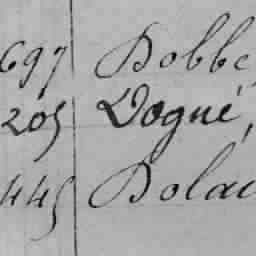 697 Dobbe
205 Dogué,
445 Dolai